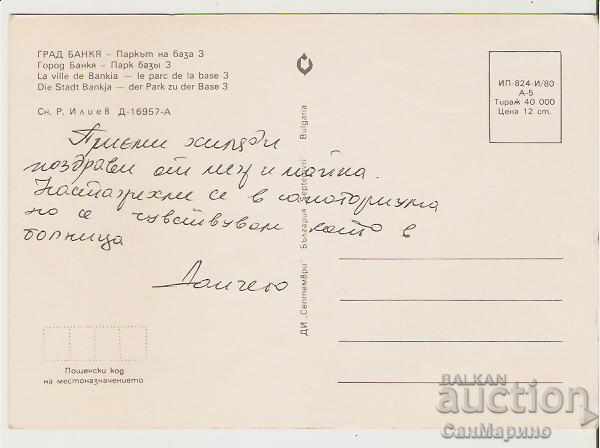 ГРАД БАНКЯ – Паркът на база 3
Город Банкя – Парк базы 3
La ville de Bankia — le parc de la base 3
Die Stadt Bankja — der Park zu der Base 3
Сн. Р. Илиев Д-16957-А
ИП-824-И/80
А-5
Тираж 40 000
Цена 12 ст.
Приеми хиляди
поздрави от мен и майка.
се в санаториума
но се чувствувам като в
болница
ДИ „Септември" България Septemvri Bulgaria
Пощенски код
на местоназначението
BALKAN
auction
СанМарино